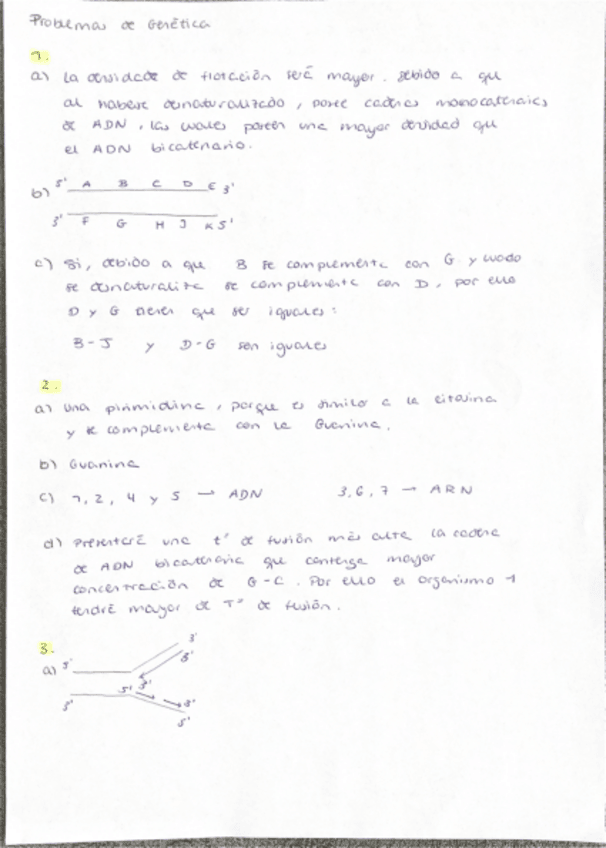 Problemas de Genética
1.
a) La densidad de flotación será mayor. Debido a que
al haberse desnaturalizado, posee cadenas monocatenarias
de ADN, las cuales poseen una mayor densidad que
el ADN bicatenario.
b) 5' A B C D E 3'
3' F G H J K 5'
c) Si, debido a que B se complementa con G y cuando
se desnaturaliza se complementa con D, por ello
D y G tienen que ser iguales:
B-J y D-G son iguales
2.
a) Una pirimidina, porque es similar a la citosina
y se complementa con la Guanina.
b) Guanina
c) 1, 2, 4 y 5 → ADN 3, 6, 7 → ARN
d) Presentará una tª de fusión más alta la cadena
de ADN bicatenaria que contenga mayor
concentración de G-C. Por ello el organismo 1
tendrá mayor de Tª de fusión.
3.
a) 5' 3'
3'
5' 3'
3' 3'
5'